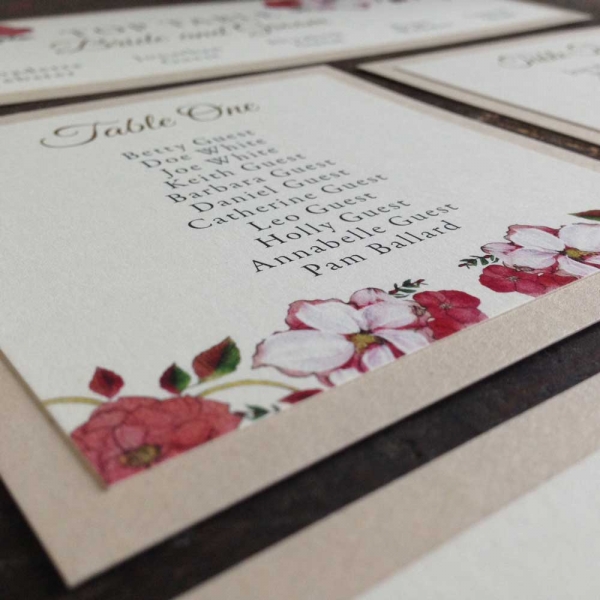 TOP TABLE
Bride and Groom
Table One
Betty Guest
Doe White
Joe White
Keith Guest
Barbara Guest
Daniel Guest
Catherine Guest
Leo Guest
Holly Guest
Annabelle Guest
Pam Ballard